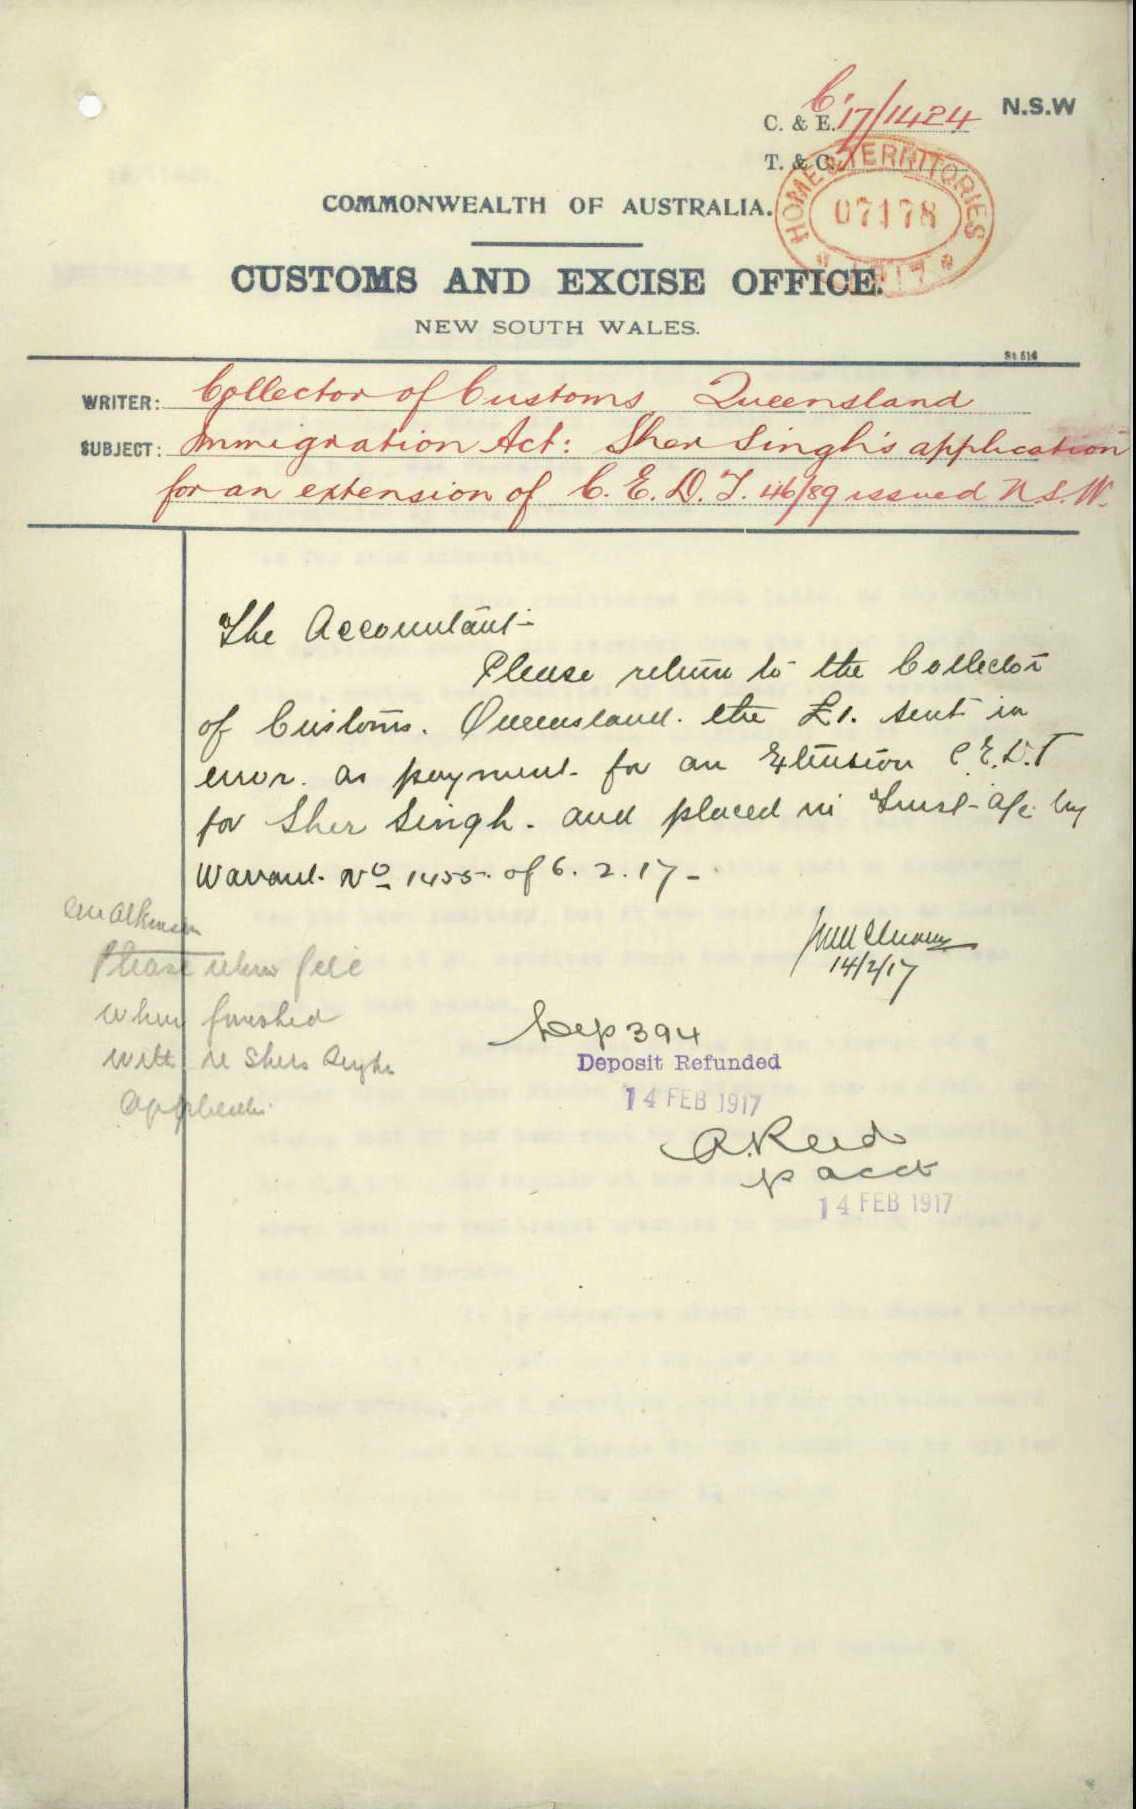 C. & E. C. 17/1424 N.S.W
T. & C.
HOME & TERRITORIES
07178
1917
COMMONWEALTH OF AUSTRALIA.
CUSTOMS AND EXCISE OFFICE.
NEW SOUTH WALES.
WRITER: Collector of Customs Queensland
SUBJECT: Immigration Act: Sher Singh's application
for an extension of C. E. D. T. 46/89 issued N.S.W.
The Accountant
Please return to the Collector
of Customs. Queensland. the £1. sent in
error. as payment. for an Extension C.E.D.T
for Sher Singh. and placed in Trust a/c by
Warrant. No 1455. of 6. 2. 17 -
14/2/17
Mr Atkinson
Please return file
when finished
with re Sher Singh's
Applicatn.
Dep 394
Deposit Refunded
14 FEB 1917
A. Reid
p acct
14 FEB 1917